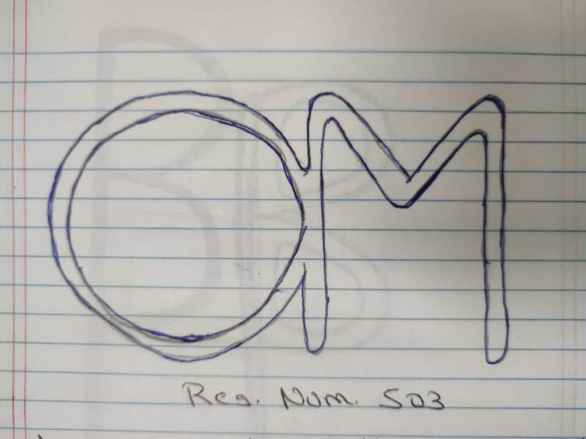 OM
Reg. Num. 503